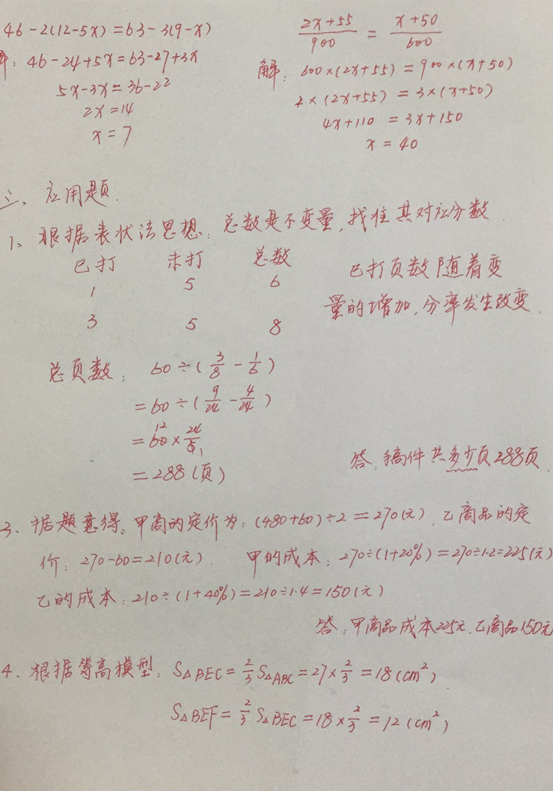 46-2(12-5x)=63-3(9-x)
46-24+5x=63-27+3x
5x-3x=36-22
2x=14
x=7
(2x+55)/900 = (x+50)/600
解: 600×(2x+55)=900×(x+50)
2×(2x+55)=3×(x+50)
4x+110=3x+150
x=40
三、应用题.
1、根据表状法思想: 总数是不变量,找准其对应分数.
已打 未打 总数
1 5 6
3 5 8
已打页数随着变
量的增加,分率发生改变.
总页数: 60÷(3/8-1/6)
=60÷(9/24-4/24)
=60×24/5 12 1
=288(页)
答,稿件共多少页288页.
3、据题意得,甲商的定价为:(480+60)÷2=270(元),乙商品的定
价:270-60=210(元). 甲的成本:270÷(1+20%)=270÷1.2=225(元)
乙的成本:210÷(1+40%)=210÷1.4=150(元)
答:甲商品成本225元,乙商品150元
4、根据等高模型,S△BEC=2/3S△ABC=27×2/3=18(cm²)
S△BEF=2/3S△BEC=18×2/3=12(cm²)